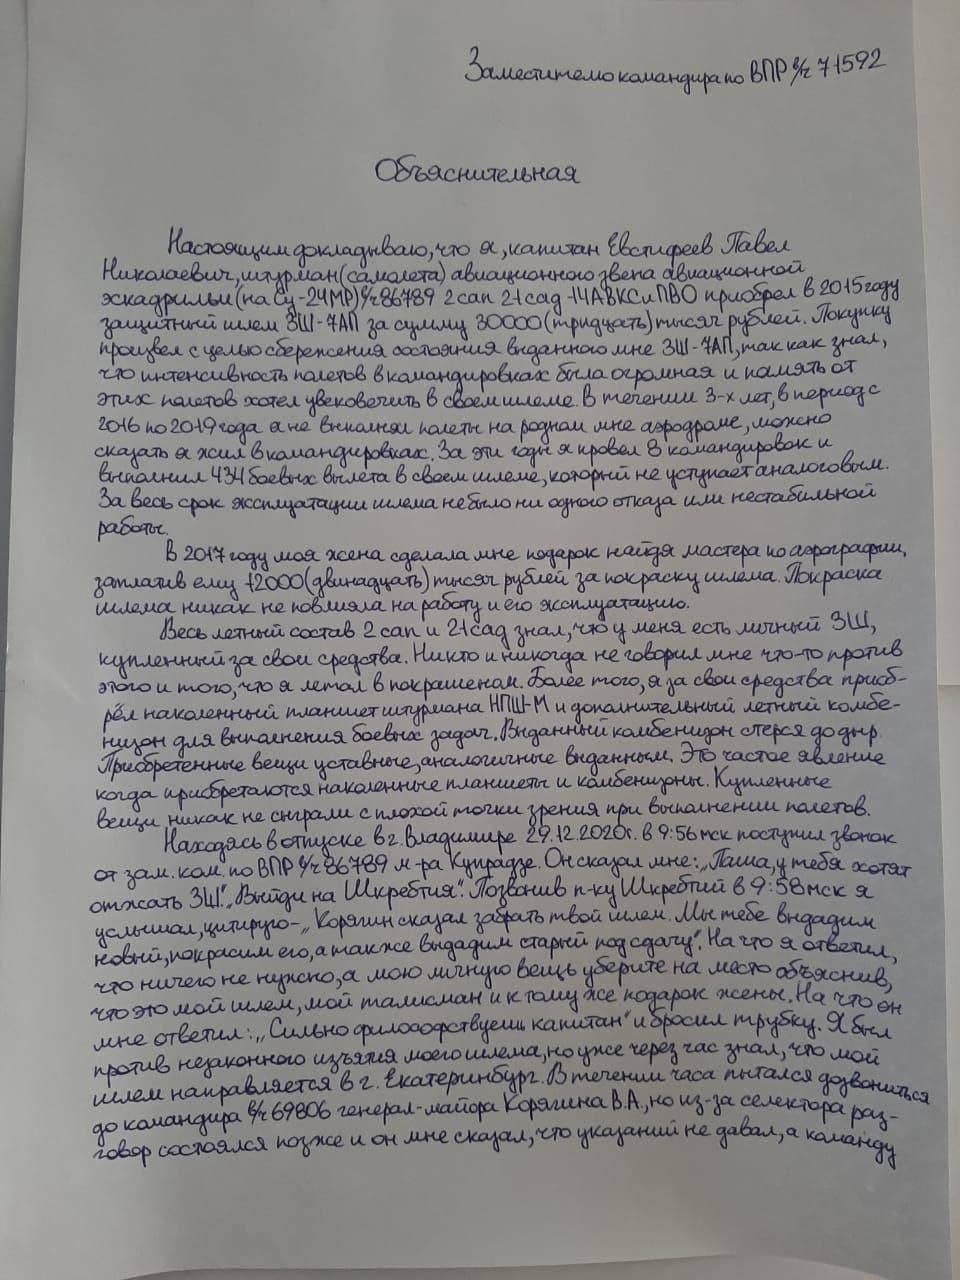 Заместителю командира по ВПР в/ч 71592
Объяснительная
Настоящим докладываю, что я, капитан Евстифеев Павел
Николаевич, штурман (самолета) авиационного звена авиационной
эскадрильи (на Су-24МР) в/ч 86789 2 сап 21 сад 14 АВКС и ПВО приобрел в 2015 году
защитный шлем ЗШ-7АП за сумму 30000 (тридцать) тысяч рублей. Покупку
произвел с целью сбережения состояния выданного мне ЗШ-7АП, так как знал,
что интенсивность полетов в командировках была огромная и память от
этих полетов хотел увековечить в своем шлеме. В течении 3-х лет, в период с
2016 по 2019 года я не выполнял полеты на родном мне аэродроме, можно
сказать я жил в командировках. За эти годы я провел 8 командировок и
выполнил 434 боевых вылета в своем шлеме, который не уступает аналоговым.
За весь срок эксплуатации шлема не было ни одного отказа или нестабильной
работы.
В 2017 году моя жена сделала мне подарок найдя мастера по аэрографии,
заплатив ему 12000 (двинадцать) тысяч рублей за покраску шлема. Покраска
шлема никак не повлияла на работу и его эксплуатацию.
Весь летный состав 2 сап и 21 сад знал, что у меня есть личный ЗШ,
купленный за свои средства. Никто и никогда не говорил мне что-то против
этого и того, что я летал в покрашеном. Более того, я за свои средства приоб-
рёл наколенный планшет штурмана НПШ-М и дополнительный летный комбе-
низон для выполнения боевых задач. Выданный комбенизон стерся до дыр.
Приобретенные вещи уставные, аналогичные выданным. Это частое явление
когда приобретаются наколенные планшеты и комбенизоны. Купленные
вещи никак не сыграли с плохой точки зрения при выполнении полетов.
Находясь в отпуске в г. Владимире 29.12.2020г. в 9:56 мск поступил звонок
от зам. ком. по ВПР в/ч 86789 м-ра Купрадзе. Он сказал мне: „Паша, у тебя хотят
отжать ЗШ". „Выйди на Шкребтия". Позвонив п-ку Шкребтий в 9:58 мск я
услышал, цитирую - „Корягин сказал забрать твой шлем. Мы тебе выдадим
новый, покрасим его, а также выдадим старый под сдачу". На что я ответил,
что ничего не нужно, а мою личную вещь уберите на место объяснив,
что это мой шлем, мой талисман и к тому же подарок жены. На что он
мне ответил: „Сильно филосовствуешь капитан" и бросил трубку. Я был
против незаконного изъятия моего шлема, но уже через час знал, что мой
шлем направляется в г. Екатеринбург. В течении часа пытался дозвониться
до командира в/ч 69806 генерал-майора Корягина В.А., но из-за селектора раз-
говор состоялся позже и он мне сказал, что указаний не давал, а команду